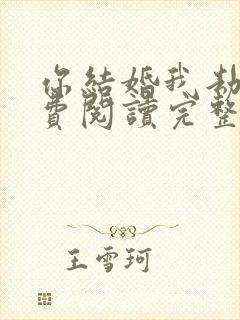 你結婚我劫
費閱讀完整
王雪珂